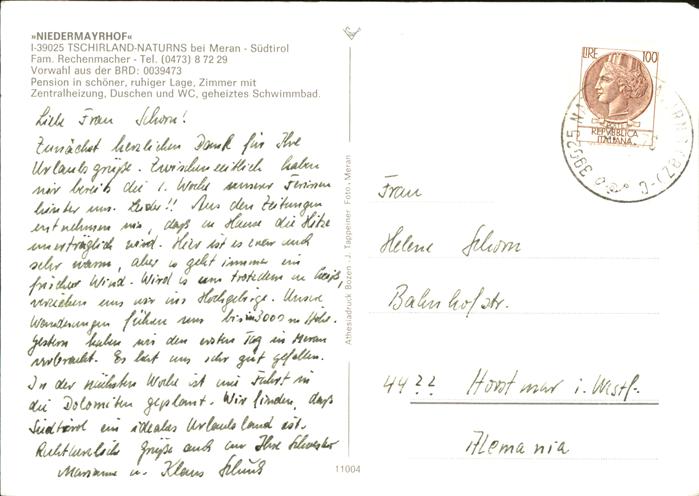 »NIEDERMAYRHOF«
I-39025 TSCHIRLAND-NATURNS bei Meran - Südtirol
Fam. Rechenmacher - Tel. (0473) 8 72 29
Vorwahl aus der BRD: 0039473
Pension in schöner, ruhiger Lage, Zimmer mit
Zentralheizung, Duschen und WC, geheiztes Schwimmbad.
Liebe Frau Schorn!
Zunächst herzlichen Dank für Ihre
Urlaubsgrüße. Zwischenzeitlich haben
wir bereits die 1. Woche unserer Ferien
hinter uns. Leider!! Aus den Zeitungen
entnehmen wir, daß zu Hause die Hitze
unerträglich wird. Hier ist es zwar auch
sehr warm, aber es geht immer ein
frischer Wind. Wird es uns trotzdem zu heiß,
verziehen uns wir ins Hochgebirge. Unsere
Wanderungen führen uns bis in 3000 m Höhe.
Gestern haben wir den ersten Tag in Meran
verbracht. Es hat uns sehr gut gefallen.
In der nächsten Woche ist eine Fahrt in
die Dolomiten geplant. Wir finden, daß
Südtirol ein ideales Urlaubsland ist.
Recht herzliche Grüße auch an Ihre Schwester
Marianne u. Klaus
Athesiadruck Bozen - J. Tappeiner Foto, Meran
11004
LIRE 100
REPVBBLICA
ITALIANA
39025
Frau
Helene Schorn
Bahnhofstr.
44?? Horstmar i. Westf.
Alemania